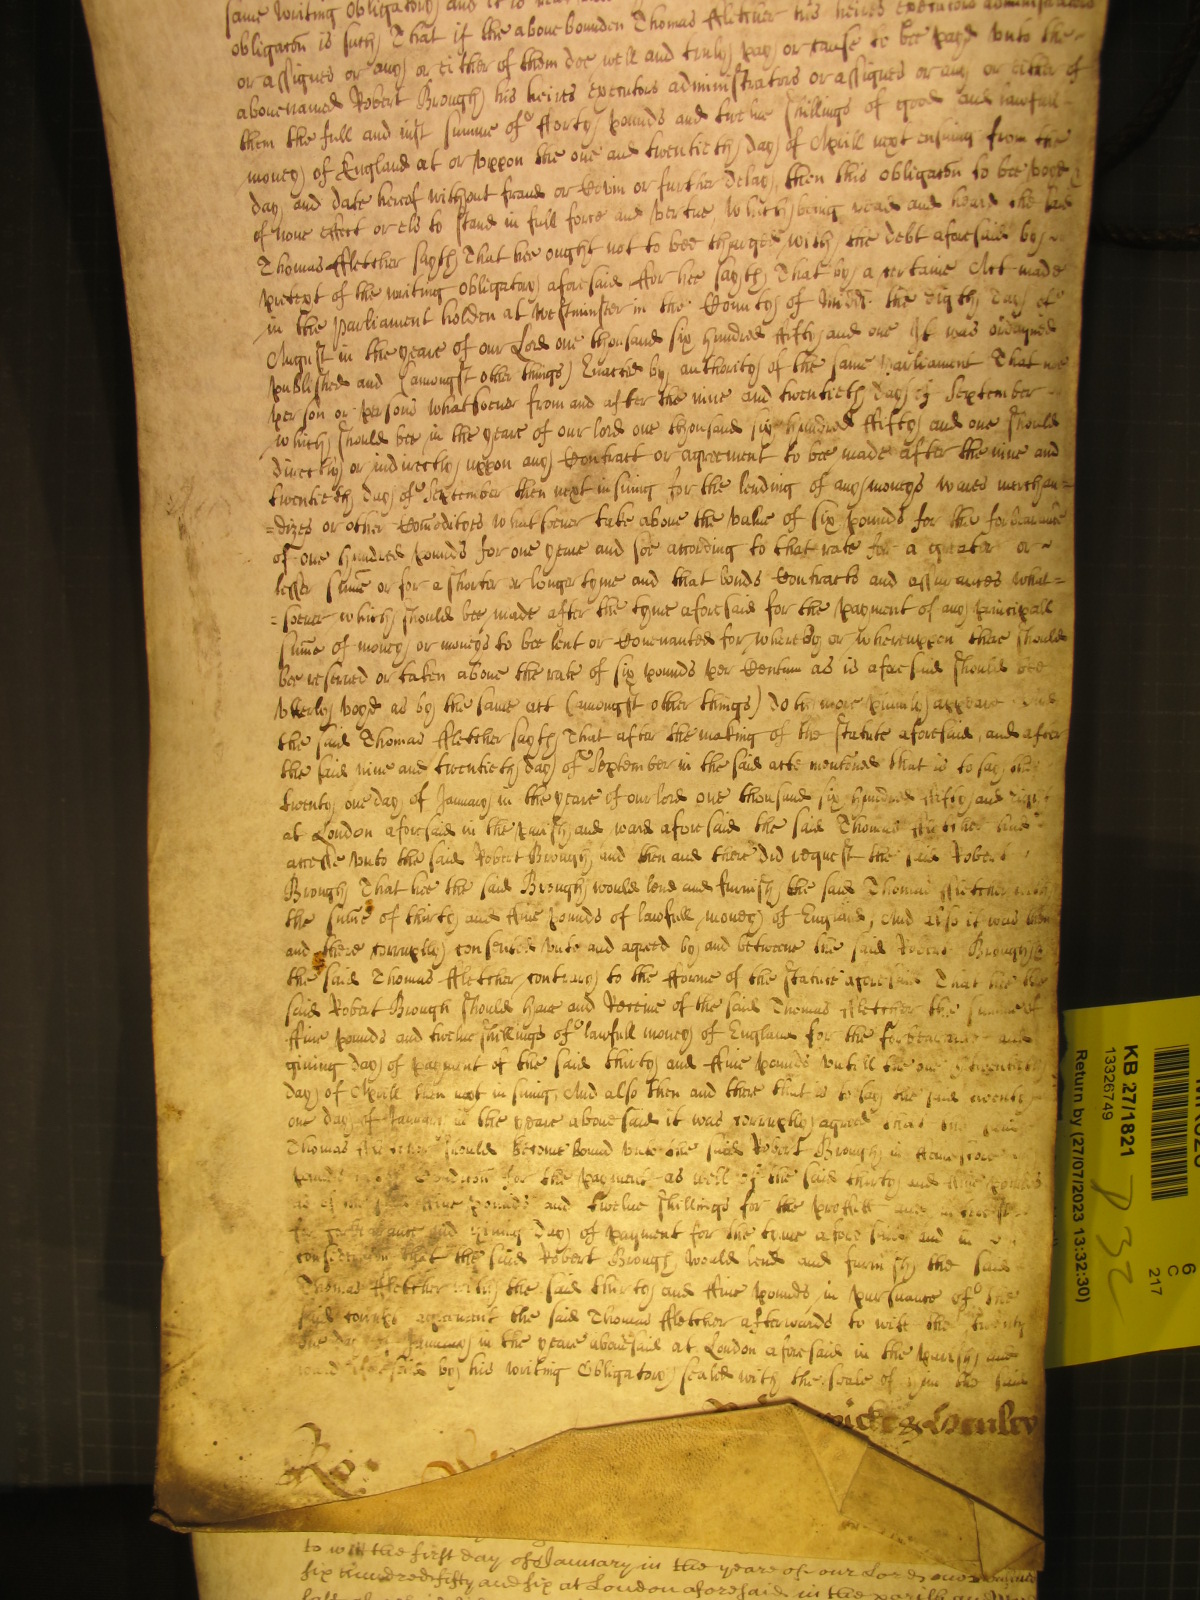 same writing obligatory and it is
obligacōn is such That if the abovebounden Thomas ffletcher his heires executors administrators
or assignes or any or either of them doe well and truly pay or cause to bee payd unto the
abovenamed Robert Brough his heires executors administrators or assignes or any or either of
them the full and just summe of fforty pounds and twelve shillings of good and lawfull
money of England at or uppon the one and twentieth day of Aprill next ensuing from the
day and date hereof without fraud or Covin or further delay, then this obligacōn to bee voyd
of none effect or els to stand in full force and vertue Which being read and heard the said
Thomas ffletcher sayth That hee ought not to bee charged with the debt aforesaid by
pretext of the writing obligatory aforesaid ffor hee sayth That by a certaine Act made
in the Parliament holden at Westminster in the County of Midd. the Eigth day of
August in the yeare of our Lord one thousand six hundred ffifty and one It was ordayned
published and (amongst other things) Enacted by authority of the same Parliament That noe
person or persons whatsoever from and after the nine and twentieth day of September
which should bee in the yeare of our lord one thousand six hundred ffifty and one should
directly or indirectly uppon any Contract or agreement to bee made after the nine and
twentieth day of September then next insuing for the lending of any moneys wares merchan=
=dizes or other Comodityes whatsoever take above the value of six pounds for the forbearance
of one hundred pounds for one yeare and soe according to that rate for a greater or
lesser sum̄e or for a shorter or longer tyme and that bonds Contracts and assurances what=
=soever which should bee made after the tyme aforesaid for the payment of any principall
sum̄e of money or moneys to bee lent or Covenanted for whereby or whereuppon there should
bee reserved or taken above the rate of six pounds per Centum as is aforesaid should bee
utterly voyd as by the same act (amongst other things) doth more plainly appeare And
the said Thomas ffletcher sayth That after the making of the statute aforesaid, and after
the said nine and twentieth day of September in the said acte mentōned that is to say the
twenty one day of January in the yeare of our lord one thousand six hundred ffifty and
at London aforesaid in the parish and ward aforesaid the said Thomas ffletcher did
accesse unto the said Robert Brough and then and there did request the said Robert
Brough That hee the said Brough would lend and furnish the said Thomas ffletcher with
the sum̄e of thirty and ffive pounds of lawfull money of England, And also it was then
and there corruptly consented unto and agreed by and betweene the said Robert Brough &
the said Thomas ffletcher contrary to the fforme of the statute aforesaid That hee the
said Robert Brough should have and Receive of the said Thomas ffletcher the summe of
ffive pounds and twelve shillings of lawfull money of England for the forbearance and
giving day of payment of the said thirty and ffive pounds untill the one & twentieth
day of Aprill then next insuing, And also then and there that is to say the said twenty
one day of January in the yeare abovesaid it was corruptly agreed that the said
Thomas ffletcher should become bound unto the said Robert Brough in ffourscore
pounds Condicōn for the payment as well of the said thirty and ffive pounds
as of the said ffive pounds and twelve shillings for the proffitt and interest
for forbearance and giving day of payment for the tyme aforesaid and in
consideracōn that the said Robert Brough would lend and furnish the said
Thomas ffletcher with the said thirty and ffive pounds, in pursuance of the
said corrupt agreement the said Thomas ffletcher afterwards to witt the twenty
one day of January in the yeare abovesaid at London aforesaid in the parish and
ward aforesaid by his writing Obligatory sealed with the seale of him the said
Ro:
to witt the first day of January in the yeare of our Lord one
six hundred fifty and six at London aforesaid in the parish and
KB 27/1821
13326749
Return by (27/07/2023 13:32:30)
6
C
217